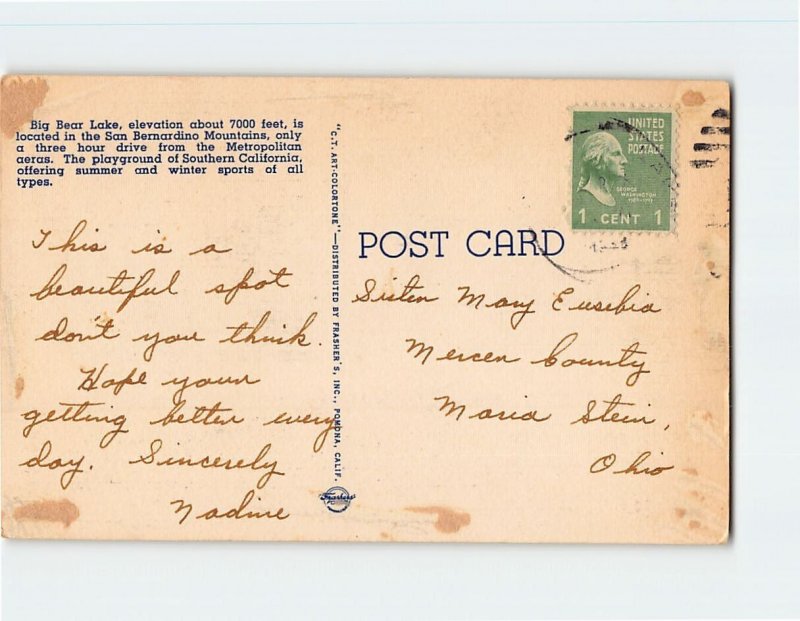 Big Bear Lake, elevation about 7000 feet, is
located in the San Bernardino Mountains, only
a three hour drive from the Metropolitan
aeras. The playground of Southern California,
offering summer and winter sports of all
types.
This is a
beautiful spot
don't you think.
Hope your
getting better every
day. Sincerely
Nadine
"C.T. ART-COLORTONE"—DISTRIBUTED BY FRASHER'S, INC., POMONA, CALIF.
Frashers
UNITED
STATES
POSTAGE
GEORGE
WASHINGTON
1 CENT 1
POST CARD
Sister Mary Eusebia
Mercer County
Maria Stein,
Ohio